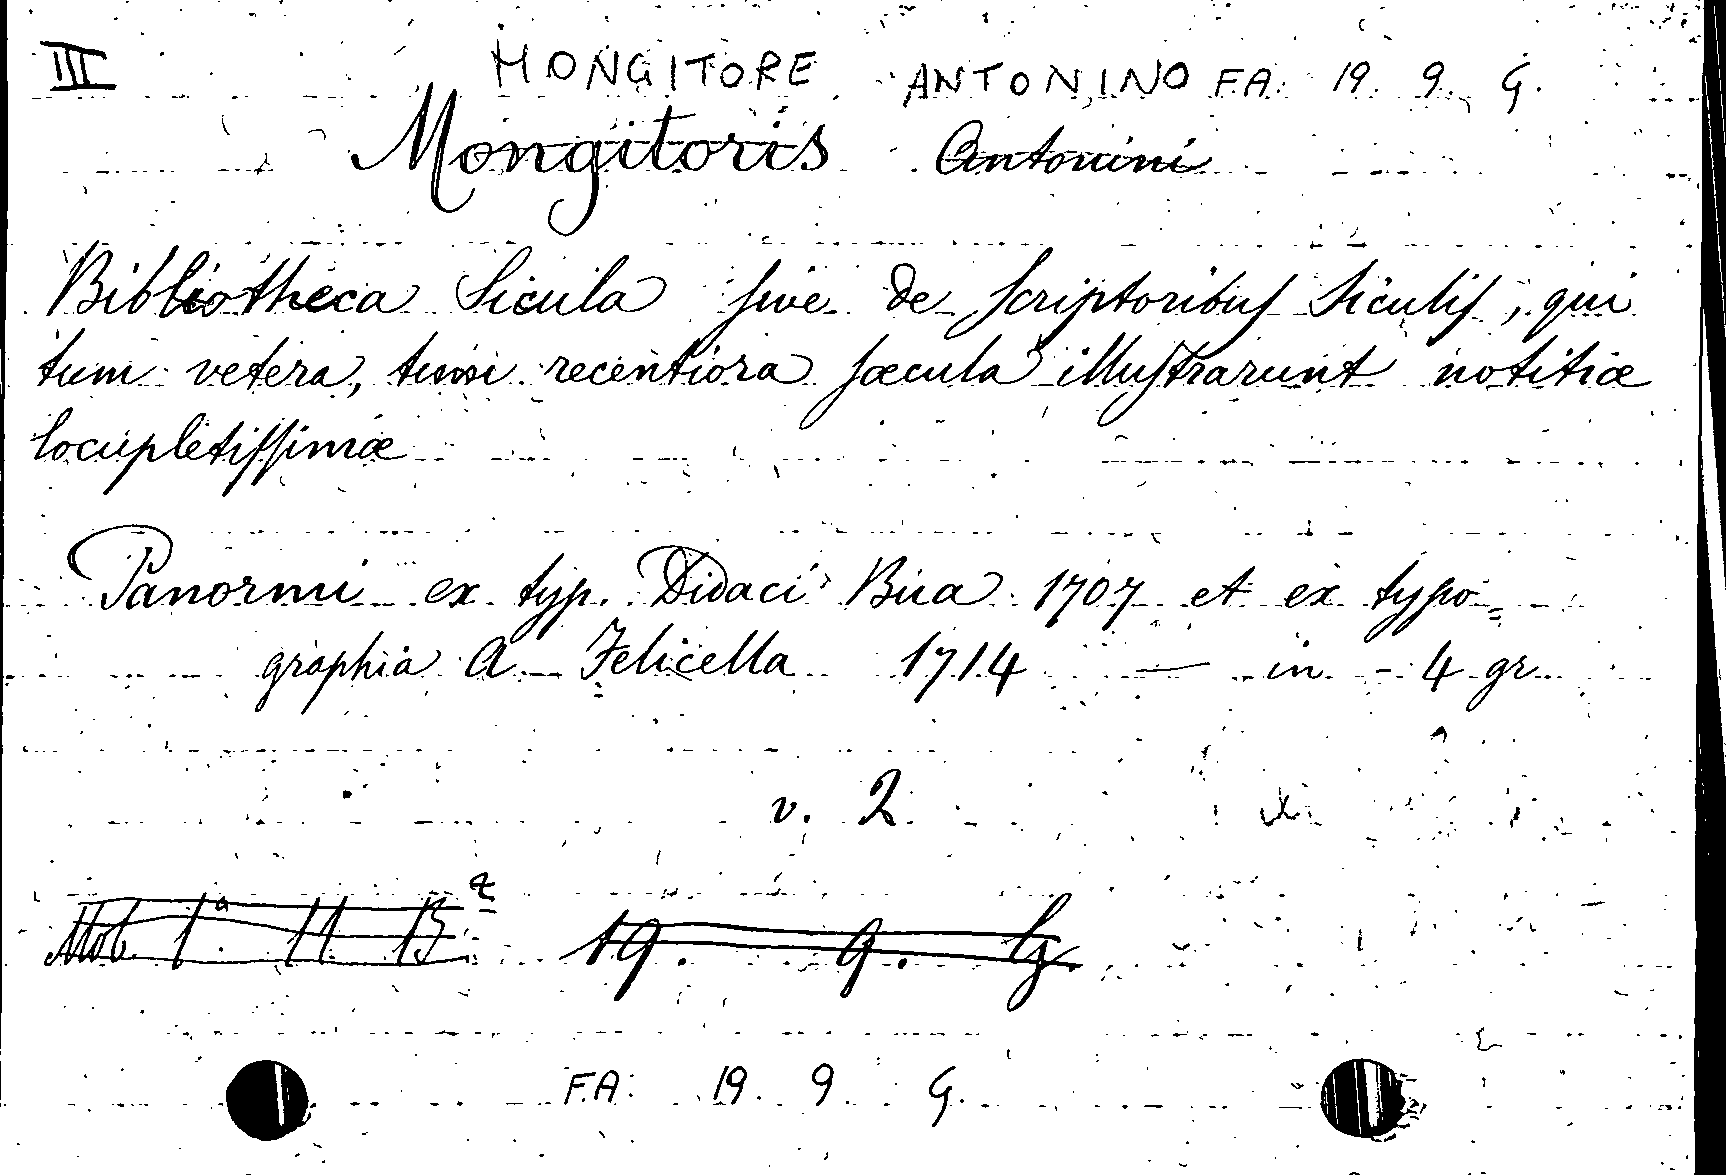 III MONGITORE ANTONINO F.A. 19. 9. G.
Mongitoris Antonini
Bibliotheca Sicula sive de Scriptoribus Siculis, qui
tum vetera, tum recentiora sæcula illustrarunt notitiæ
locupletissimæ
Panormi ex typ. Didaci Bua 1707 et ex typo=
graphia A Felicella 1714 — in - 4 gr
v. 2
Mob. 1ª. 11 B 19. 9. G.
F.A. 19. 9. G.